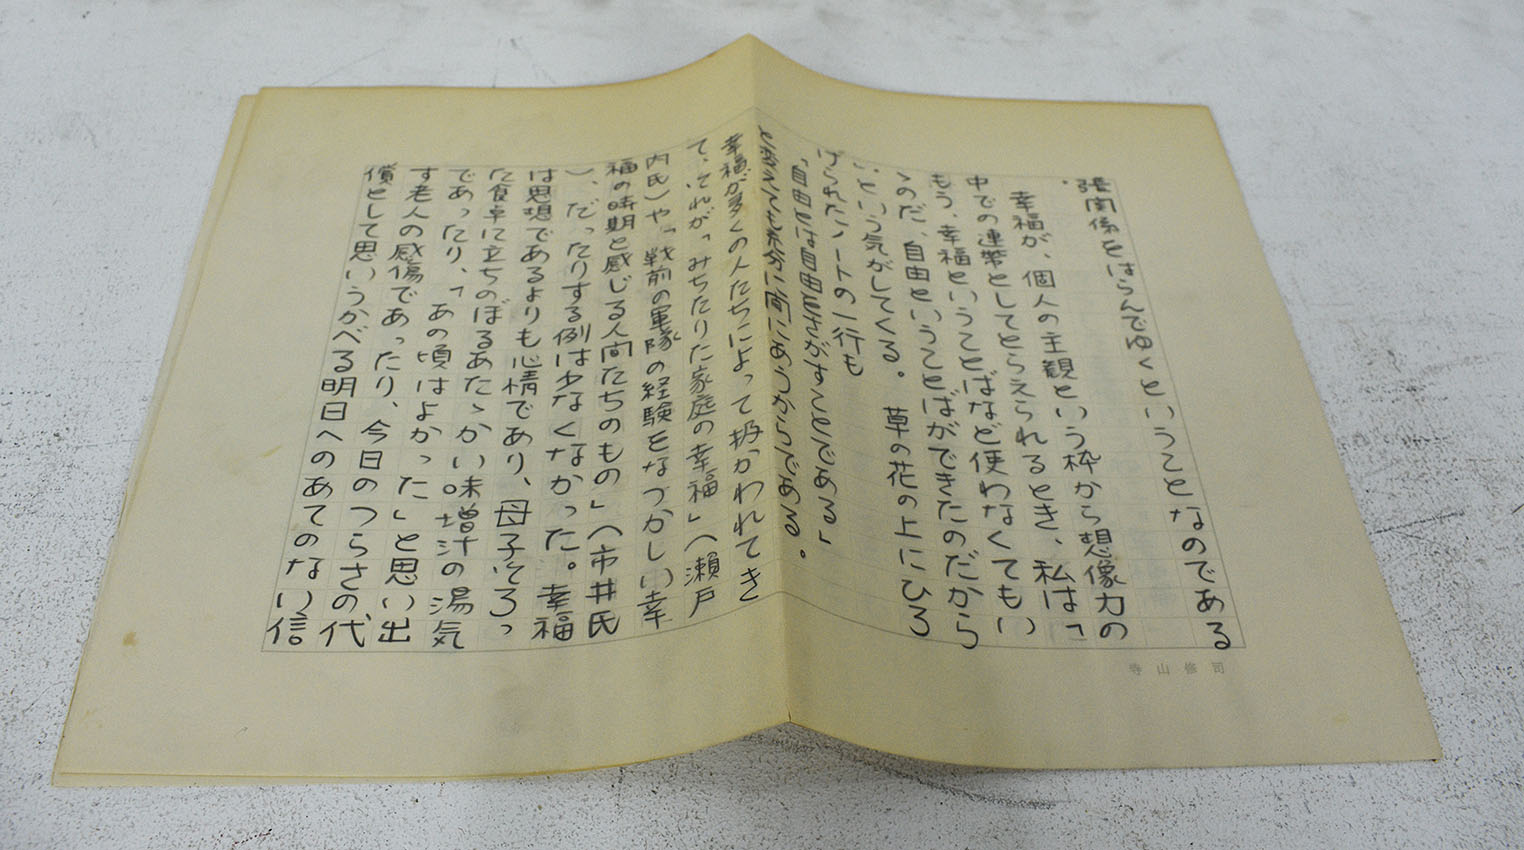 張関係をはらんでゆくということなのである
。
幸福が、個人の主観という枠から想像力の
中での連帯としてとらえられるとき、私は「
もう、幸福ということばなど使わなくてもい
ゝのだ、自由ということばができたのだから
い、という気がしてくる。草の花の上にひろ
げられたノートの一行も
「自由とは自由をさがすことである」
と変えても充分に間にあうからである。
幸福が多くの人たちによって扱かわれてき
て、それが「みちたりた家庭の幸福」(瀬戸
内氏)や「戦前の軍隊の経験をなつかしい幸
福の時期と感じる人間たちのもの」(市井氏
)、だったりする例は少なくなかった。幸福
は思想であるよりも心情であり、母子そろっ
た食卓に立ちのぼるあたゝかい味噌汁の湯気
であったり、「あの頃はよかった」と思い出
す老人の感傷であったり、今日のつらさの代
償として思いうかべる明日へのあてのない信
寺山修司